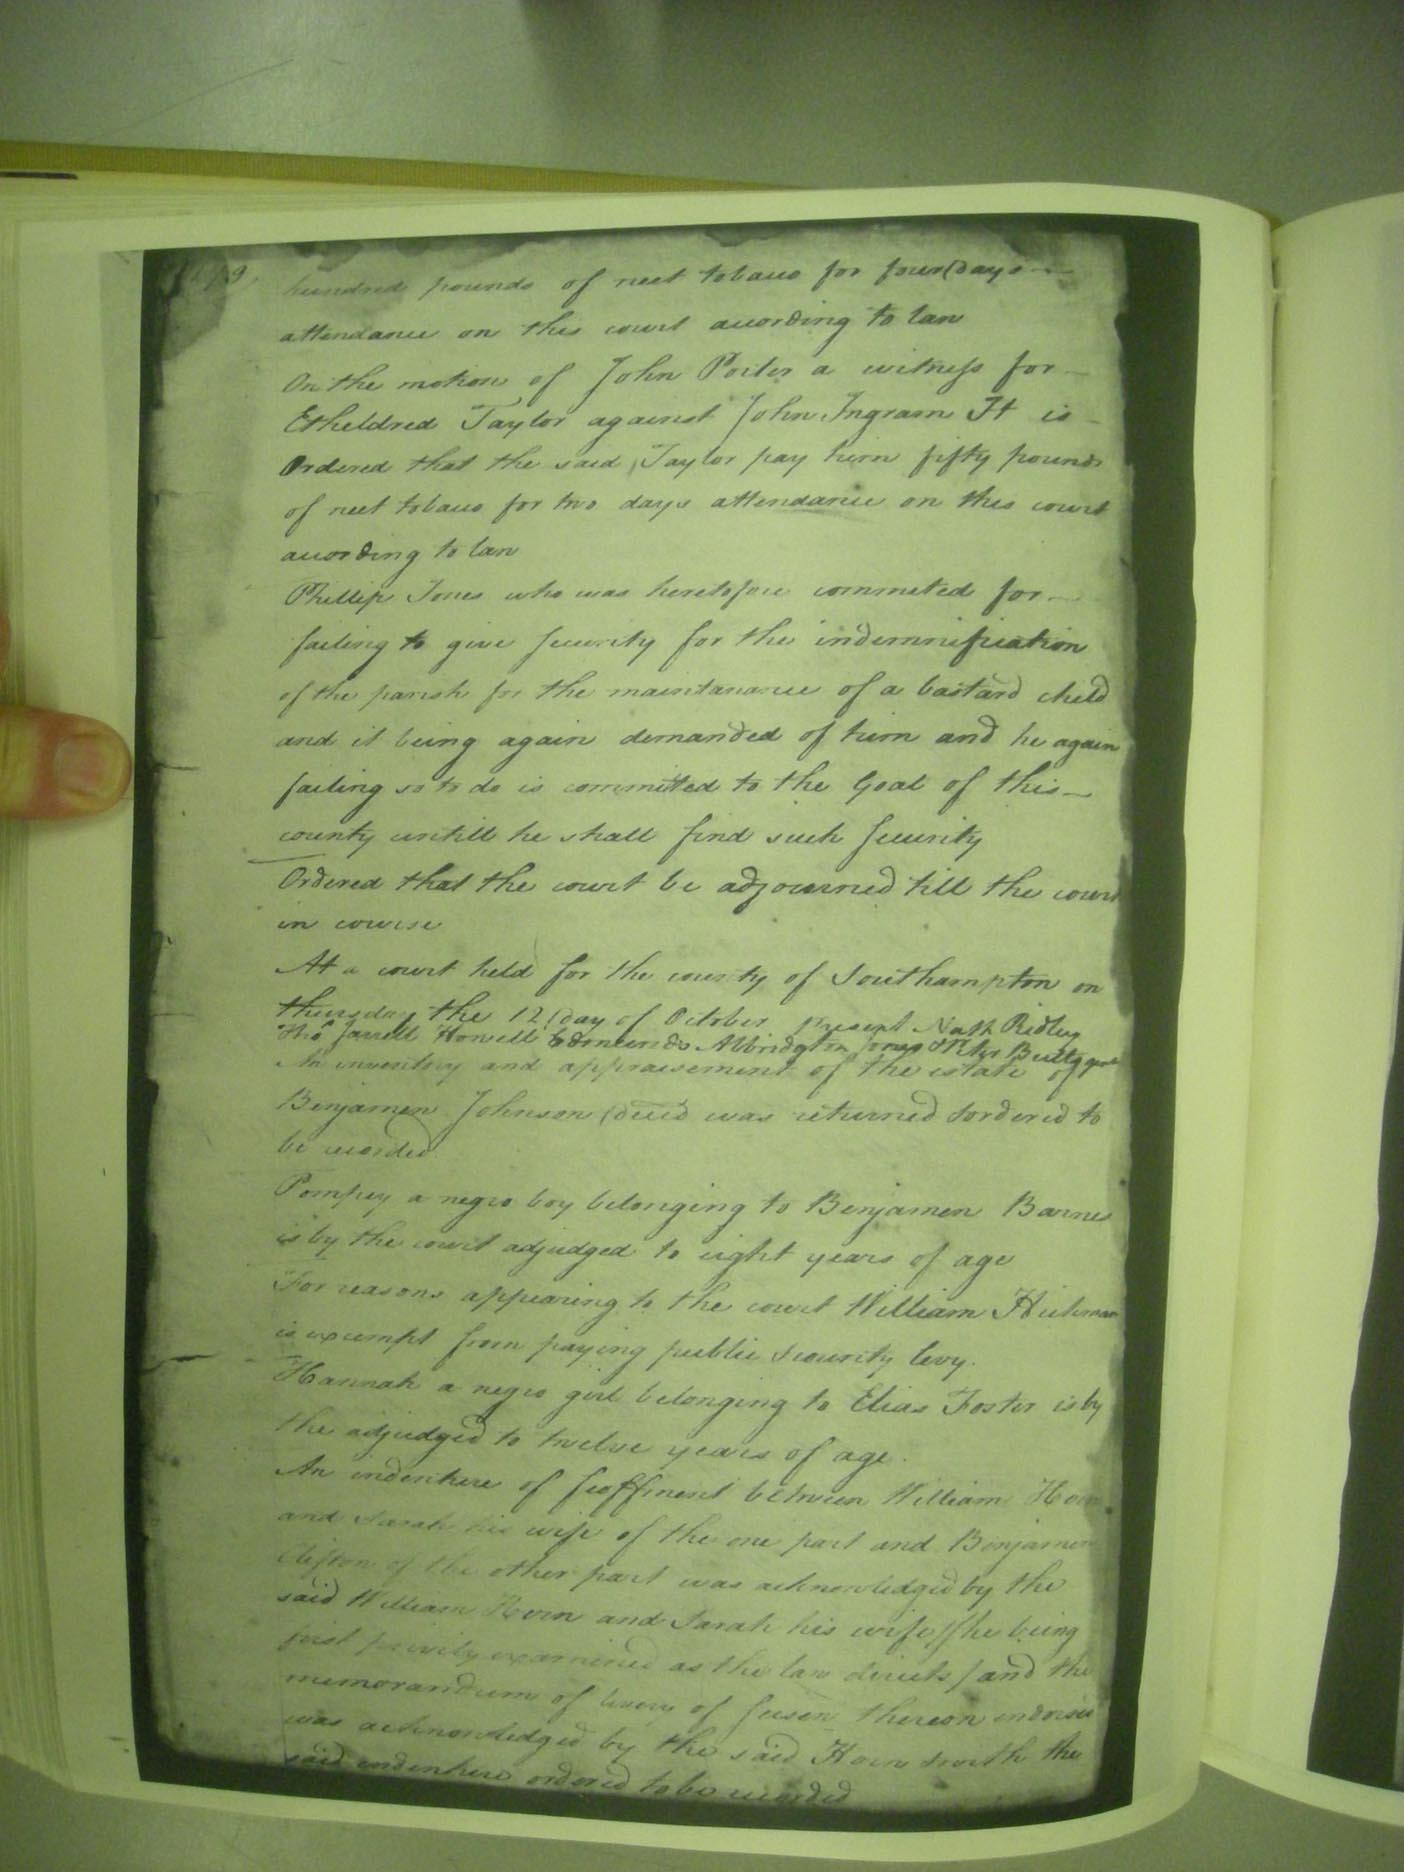 hundred pounds of neet tobacco for four days
attendance on this court according to law
On the motion of John Porter a witness for
Etheldred Taylor against John Ingram It is
Ordered that the said Taylor pay him fifty pounds
of neet tobacco for two days attendance on this court
according to law
Phillip Jones who was heretofore commited for
failing to give security for the indemnification
of the parish for the maintanance of a bastard child
and it being again demanded of him and he again
failing so to do is committed to the Goal of this
county untill he shall find such security
Ordered that the court be adjourned till the court
in course
At a court held for the county of Southampton on
thursday the 12 day of October present Nath Ridley
Thos Jarrell Howell Edmunds Albridgton Jones & Peter Butts gent
An inventory and appraisement of the estate of
Benjamen Johnson decd was returned & ordered to
be recorded
Pompey a negro boy belonging to Benjamen Barnes
is by the court adjudged to eight years of age
For reasons appearing to the court William Hickman
is exempt from paying public & county levy.
Hannah a negro girl belonging to Elias Foster is by
the adjudged to twelve years of age.
An indenture of feoffment between William Horn
and Sarah his wife of the one part and Benjamen
Clifton of the other part was acknowledged by the
said William Horn and Sarah his wife /she being
first privily examined as the law directs/ and the
memorandum of livery of seisen thereon endorsed
was acknowledged by the said Horn & with the
said indenture ordered to be recorded